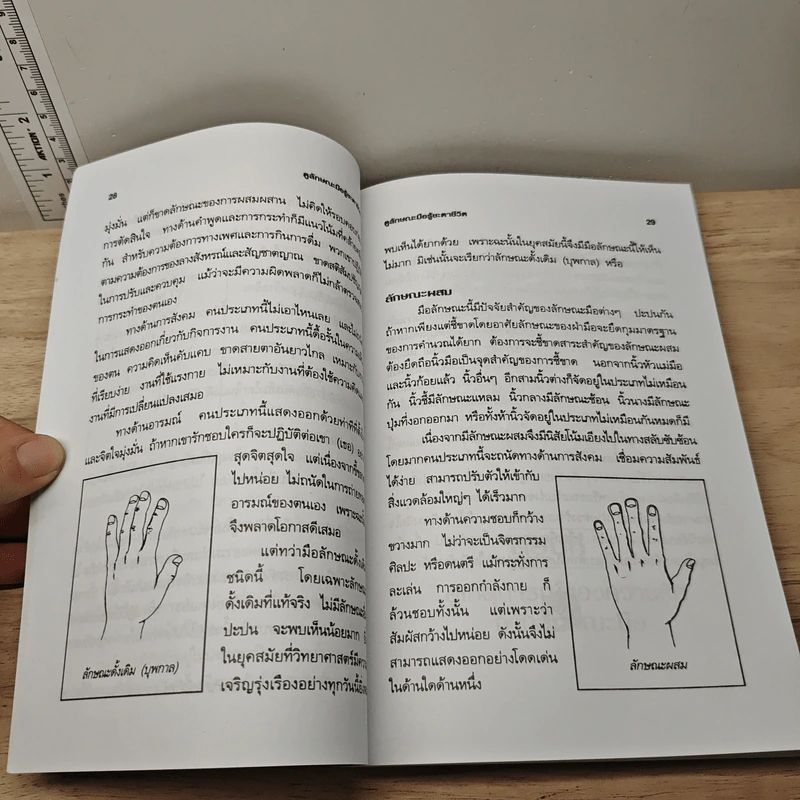 AKTION
28
ดูลักษณะมือรู้ชะตา
มุ่งมั่น แต่ก็ขาดลักษณะของการผสมผสาน ไม่คิดให้รอบคอบ
การตัดสินใจ ทางด้านคำพูดและการกระทำก็มีแนวโน้มที่
กัน สำหรับความต้องการทางเพศและการกินการดื่ม พวกเขา
ตามความต้องการของลางสังหรณ์และสัญชาตญาณ ขาดสติสัมปชัญญะ
ในการปรับและควบคุม แม้ว่าจะมีความผิดพลาดก็ไม่กล้าตรวจ
การกระทำของตนเอง
ทางด้านการสังคม คนประเภทนี้ไม่เอาไหนเลย และ
ในการแสดงออกเกี่ยวกับกิจการงาน คนประเภทนี้ดื้อรั้นในความ
ของตน ความคิดเห็นคับแคบ ขาดสายตาอันยาวไกล เหมาะกับ
ที่เรียบง่าย งานที่ใช้แรงกาย ไม่เหมาะกับงานที่ต้องใช้ความคิด
งานที่มีการเปลี่ยนแปลงเสมอ
ทางด้านอารมณ์ คนประเภทนี้แสดงออกด้วยท่าที
และจิตใจมุ่งมั่น ถ้าหากเขารักชอบใครก็จะปฏิบัติต่อเขา (เธอ)
สุดจิตสุดใจ แต่เนื่องจาก
ไปหน่อย ไม่ถนัดในการถ่าย
อารมณ์ของตนเอง เพราะ
จึงพลาดโอกาสดีเสมอ
แต่ทว่ามือลักษณะดั้งเดิม
ชนิดนี้ โดยเฉพาะลักษณะ
ดั้งเดิมที่แท้จริง ไม่มีลักษณะ
ปะปน จะพบเห็นน้อยมาก
ในยุคสมัยที่วิทยาศาสตร์มีความ
เจริญรุ่งเรืองอย่างทุกวันนี้
ลักษณะดั้งเดิม (บุพกาล)
ดูลักษณะมือรู้ชะตาชีวิต
29
พบเห็นได้ยากด้วย เพราะฉะนั้นในยุคสมัยนี้จึงมีมือลักษณะนี้ให้เห็น
ไม่มาก มิเช่นนั้นจะเรียกว่าลักษณะดั้งเดิม (บุพกาล) หรือ
ลักษณะผสม
มือลักษณะนี้มีปัจจัยสำคัญของลักษณะมือต่างๆ ปะปนกัน
ถ้าหากเพียงแต่ชี้ขาดโดยอาศัยลักษณะของฝ่ามือจะยึดกุมมาตรฐาน
ของการคำนวณได้ยาก ต้องการจะชี้ขาดสาระสำคัญของลักษณะผสม
ต้องยึดถือนิ้วมือเป็นจุดสำคัญของการชี้ขาด นอกจากนิ้วหัวแม่มือ
และนิ้วก้อยแล้ว นิ้วอื่นๆ อีกสามนิ้วต่างก็จัดอยู่ในประเภทไม่เหมือน
กัน นิ้วชี้มีลักษณะแหลม นิ้วกลางมีลักษณะซ้อน นิ้วนางมีลักษณะ
ปุ่มที่งอกออกมา หรือทั้งห้านิ้วจัดอยู่ในประเภทไม่เหมือนกันหมดก็มี
เนื่องจากมีลักษณะผสมจึงมีนิสัยโน้มเอียงไปในทางสลับซับซ้อน
โดยมากคนประเภทนี้จะถนัดทางด้านการสังคม เชื่อมความสัมพันธ์
ได้ง่าย สามารถปรับตัวให้เข้ากับ
สิ่งแวดล้อมใหญ่ๆ ได้เร็วมาก
ทางด้านความชอบก็กว้าง
ขวางมาก ไม่ว่าจะเป็นจิตรกรรม
ศิลปะ หรือดนตรี แม้กระทั่งการ
ละเล่น การออกกำลังกาย ก็
ล้วนชอบทั้งนั้น แต่เพราะว่า
สัมผัสกว้างไปหน่อย ดังนั้นจึงไม่
สามารถแสดงออกอย่างโดดเด่น
ในด้านใดด้านหนึ่ง
ลักษณะผสม